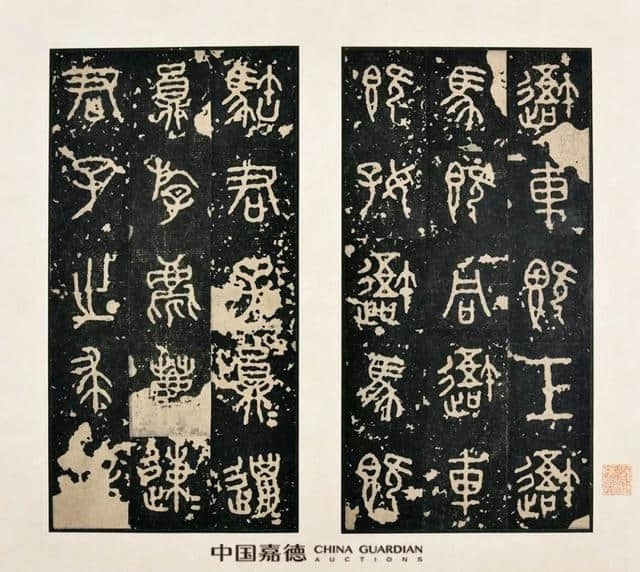 吾車既工吾
馬既同吾車
既好吾馬既
𩣡君子員邋
員斿麀鹿速
君子之求
中国嘉德 CHINA GUARDIAN
AUCTIONS